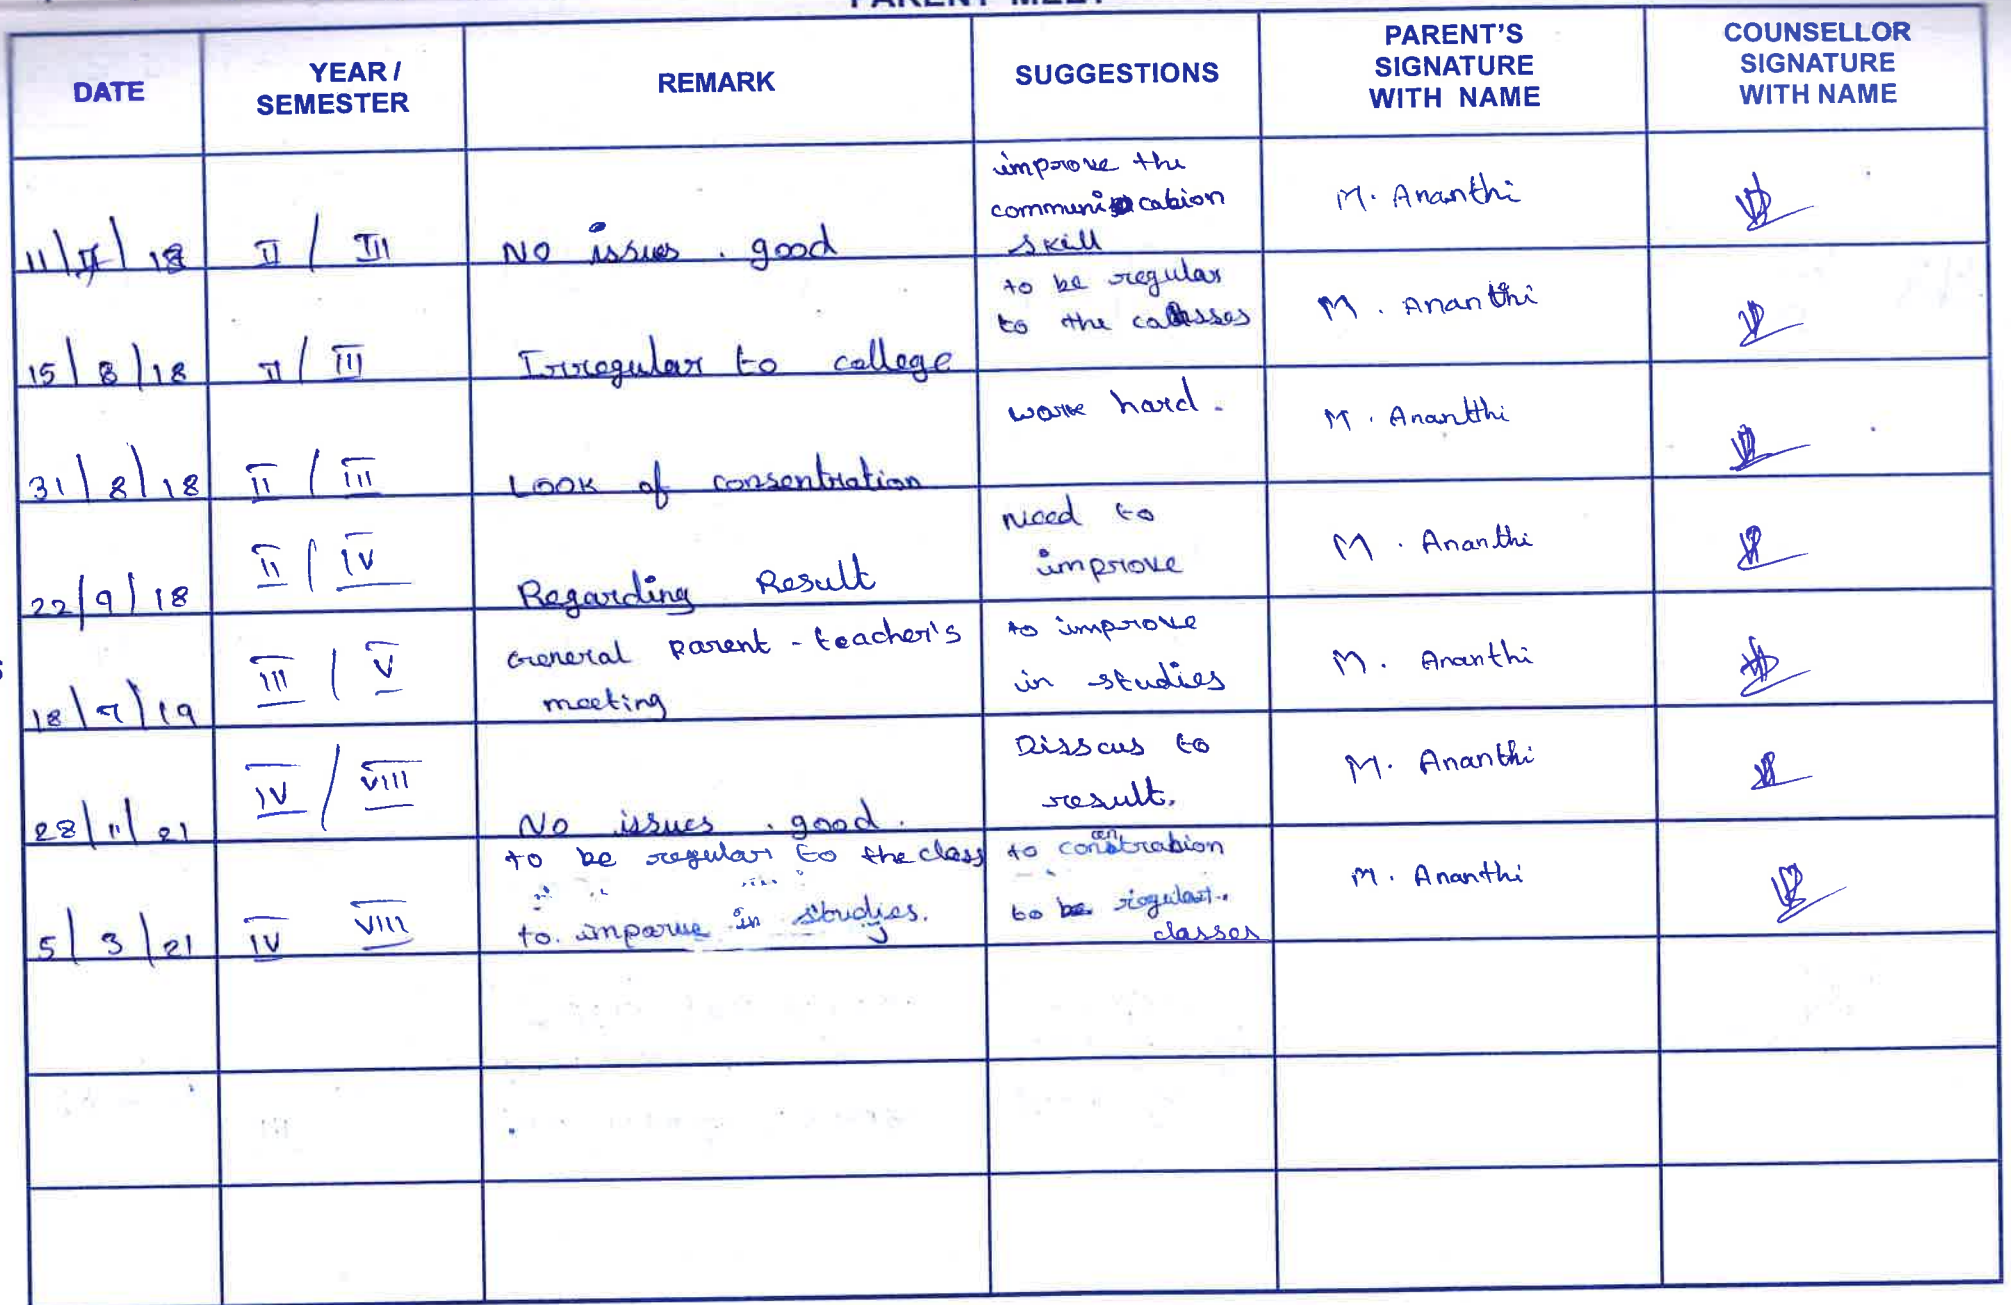 PARENT MEET
DATE
YEAR /
SEMESTER
REMARK
SUGGESTIONS
PARENT'S
SIGNATURE
WITH NAME
COUNSELLOR
SIGNATURE
WITH NAME
11/ /18 II / III NO issues . good
improve the
communication
skill
M. Ananthi
15/8/18 II / III Irregular to college
to be regular
to the calsses
M. Ananthi
31/8/18 II / III Look of consentration
work hard.
M. Ananthi
22/9/18 II / IV Regarding Result
need to
improve
M. Ananthi
18/7/19 III / V
General parent - teacher's
meeting
to improve
in studies
M. Ananthi
28/11/21 IV / VIII No issues . good.
Disscus to
result.
M. Ananthi
5/3/21 IV VIII
to be regular to the class
to. imparve in studies.
to
to be regular.
classes
M. Ananthi